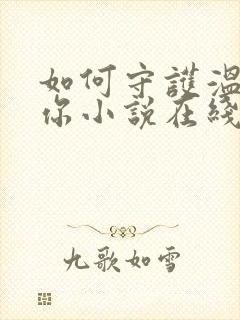 如何守護溫
你小說在綫
九歌如雪